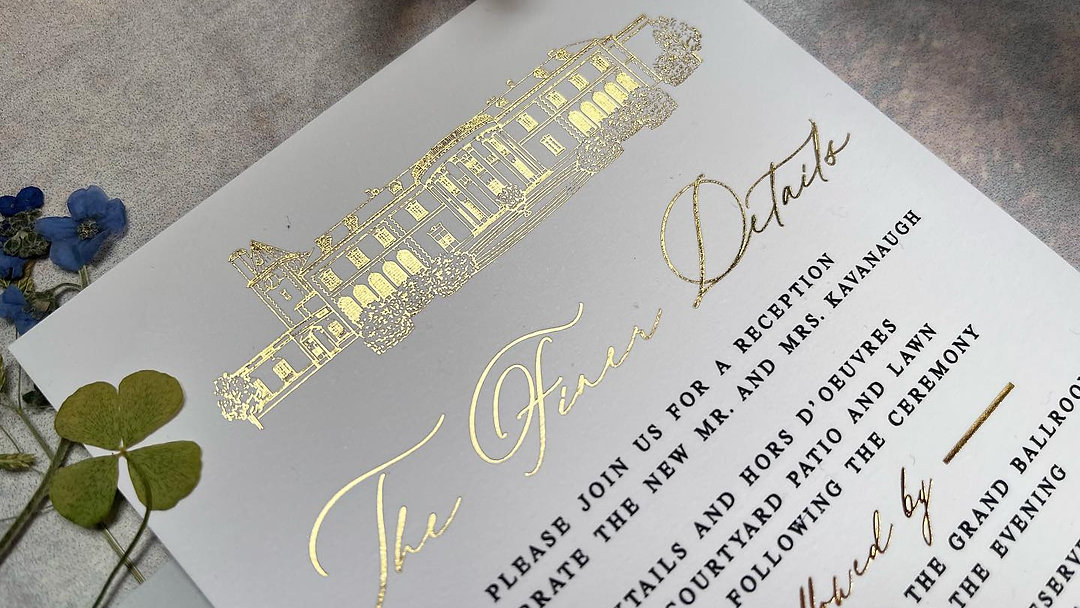 The Finer Details
PLEASE JOIN US FOR A RECEPTION
BRATE THE NEW MR. AND MRS. KAVANAUGH
KTAILS AND HORS D'OEUVRES
COURTYARD PATIO AND LAWN
FOLLOWING THE CEREMONY
llowed by
THE GRAND BALLROO
THE EVENING
SERVE